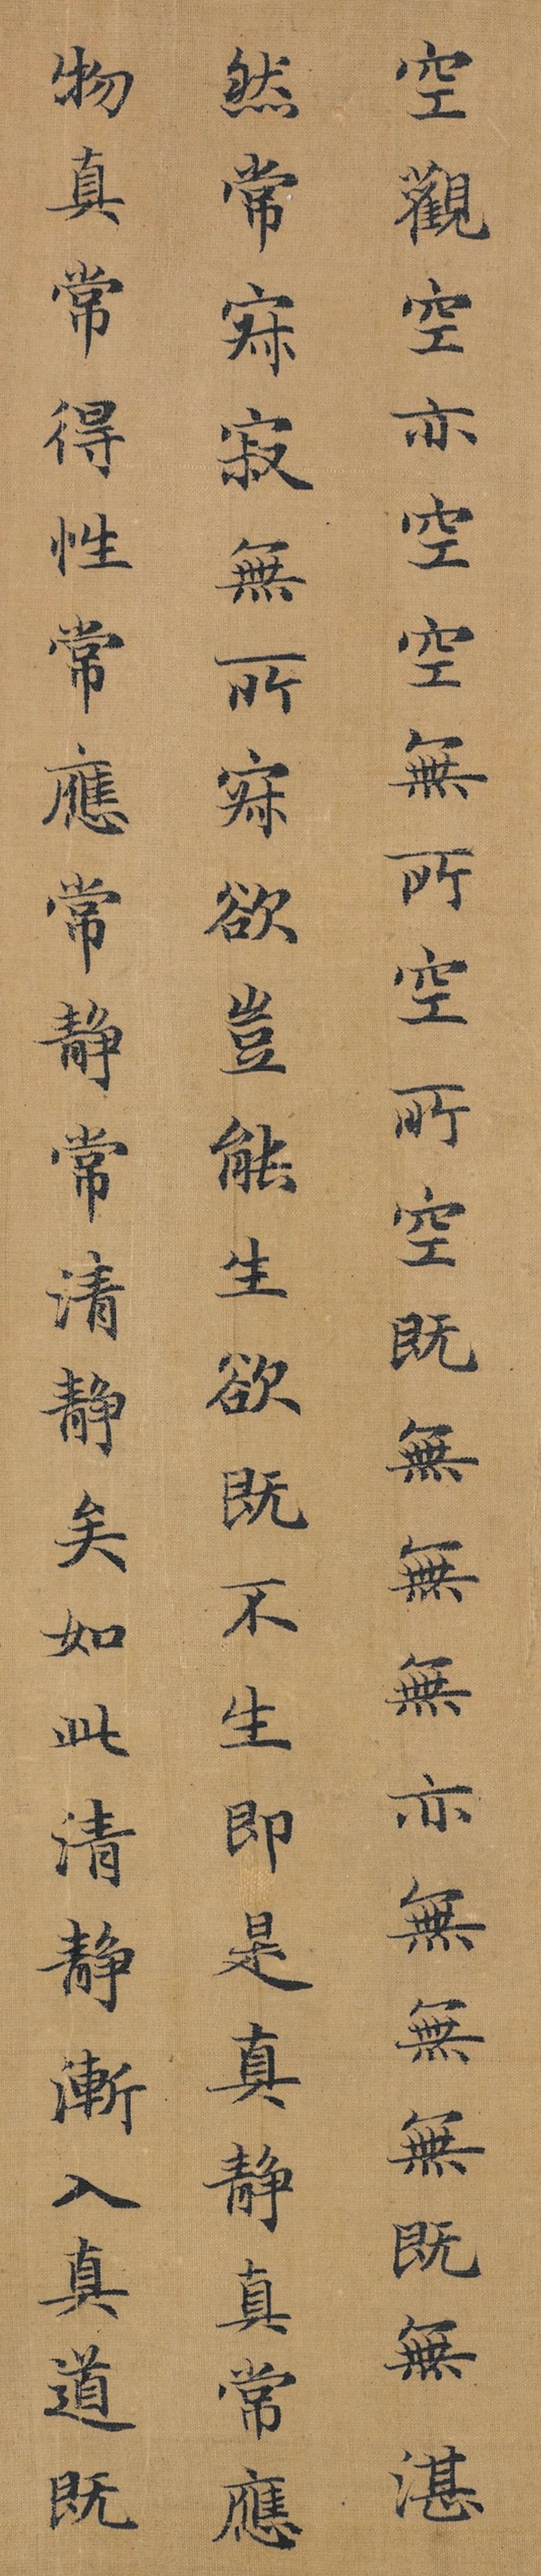 空觀空亦空空無所空所空既無無無亦無無無既無湛
然常寂寂無所寂欲豈能生欲既不生即是真静真常應
物真常得性常應常静常清静矣如此清静漸入真道既